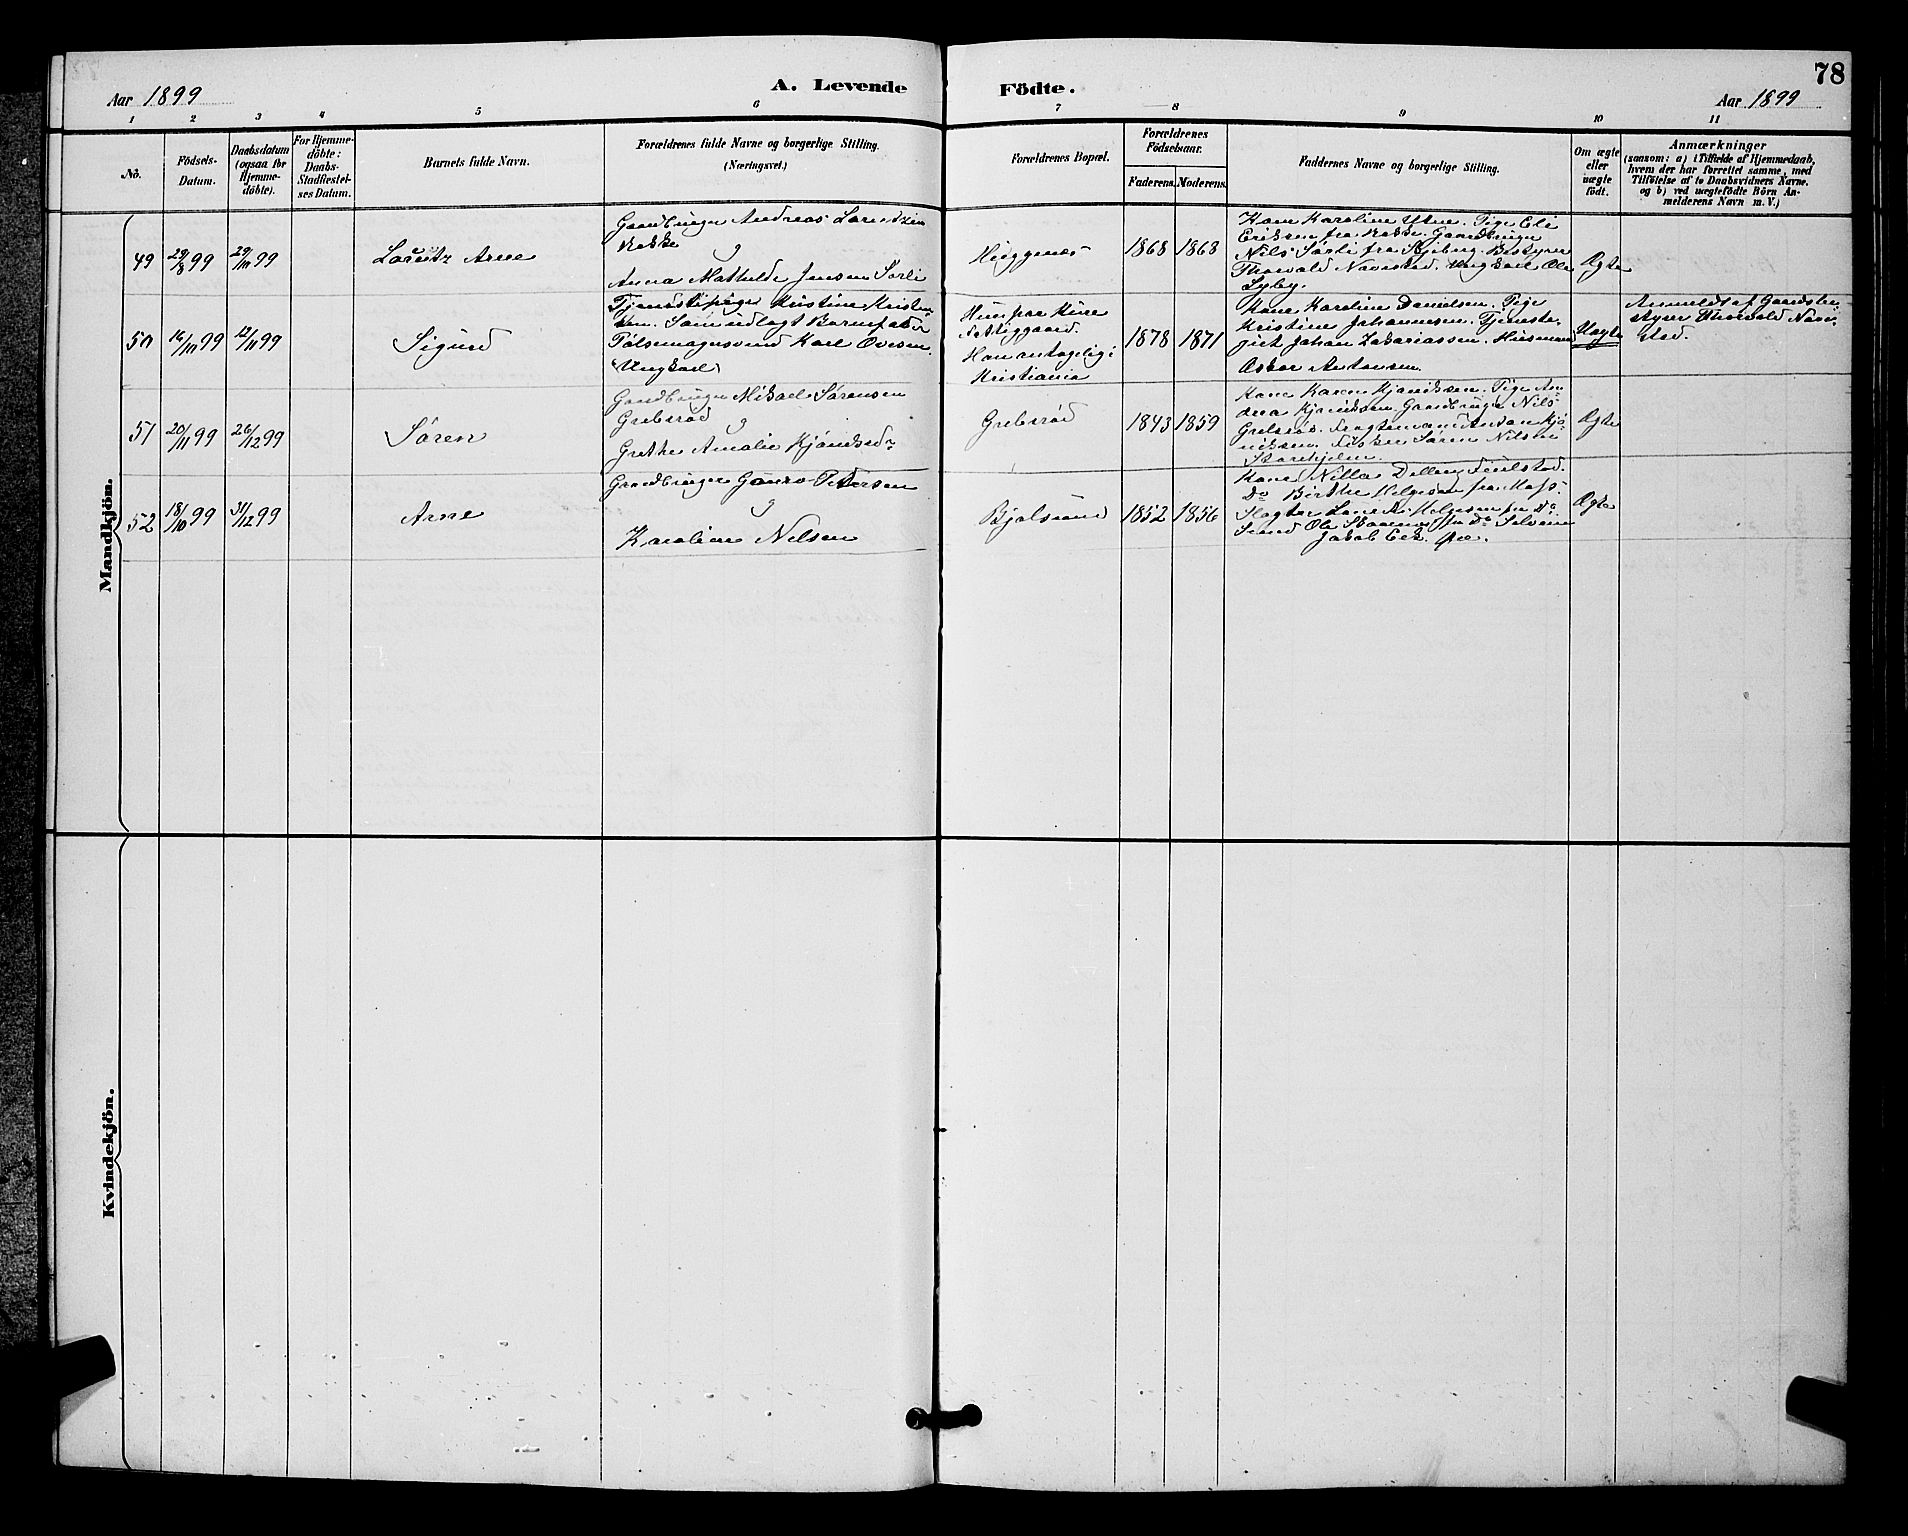 78
Aar 1899
A. Levende Födte.
Aar 1899
1 2 3 4 5 6 7 8 9 10 11
No.
Födsels-
Datum.
Daabsdatum
(ogsaa for
Hjemme-
döbte).
For Hjemme-
döbte:
Daabs-
Stadfæstel-
ses Datum.
Barnets fulde Navn.
Forældrenes fulde Navne og borgerlige Stilling.
(Næringsvei.)
Forældrenes Bopæl.
Forældrenes
Födselsaar.
Faderens. Moderens.
Faddernes Navne og borgerlige Stilling.
Om ægte
eller
uægte
födt.
Anmærkninger
(saasom: a) i Tilfælde af Hjemmedaab,
hvem der har forrettet samme, med
Tilföielse af to Daabsvidners Navne.
og b) ved uægtefödte Börn An-
melderens Navn m. V.)
Mandkjön.
49
29/8 99
29/10 99
Lauritz Arne
Gaardbruger Andreas Lorentzen
Rokke
og
Anna Mathilde Jensen Sørli
Huggenes
1868
1868
Kone Karoline Ytne. Pige Eli
Eriksen fra Rokke. Gaardbruger
Nils Sørli fra Skjeberg. Bestyrer
Thorvald Navestad. Ungkarl Ole
Lyby.
Ægte
50
16/10 99
12/11 99
Sigurd
Tjenestepige Kristine Kristen-
sen. Som udlagt Barnefader
Pølsemagersvend Karl Ovesen.
(Ungkarl)
Hun paa Kure
Fattiggaard.
Han antagelig i
Kristiania
1878
1871
Kone Karoline Danielsen. Pige
Kristine Johannesen. Tjeneste-
gut Johan Zakariassen. Husmand
Oskar Antonsen.
Uægte
Anmeldt af Gaardsbe-
styrer Thorvald Nave-
stad.
51
20/11 99
26/12 99
Søren
Gaardbruger Mikael Sørensen
Grebsrød
og
Grethe Amalie Kjøniksdr
Grebsrød
1843
1859
Kone Karen Kjøniksen. Pige An-
drea Kjøniksen. Gaardbruger Nils
Søren Nilsen
Ægte
52
18/10 99
31/12 99
Arne
Gaardbruger Petersen
og
Karoline Nilsen
Bjølsund
1852
1856
Kone
Do Birthe Helgesen fra Moss.
Helgesen fra Do
Jakob Eek.
Ægte
Kvindekjön.